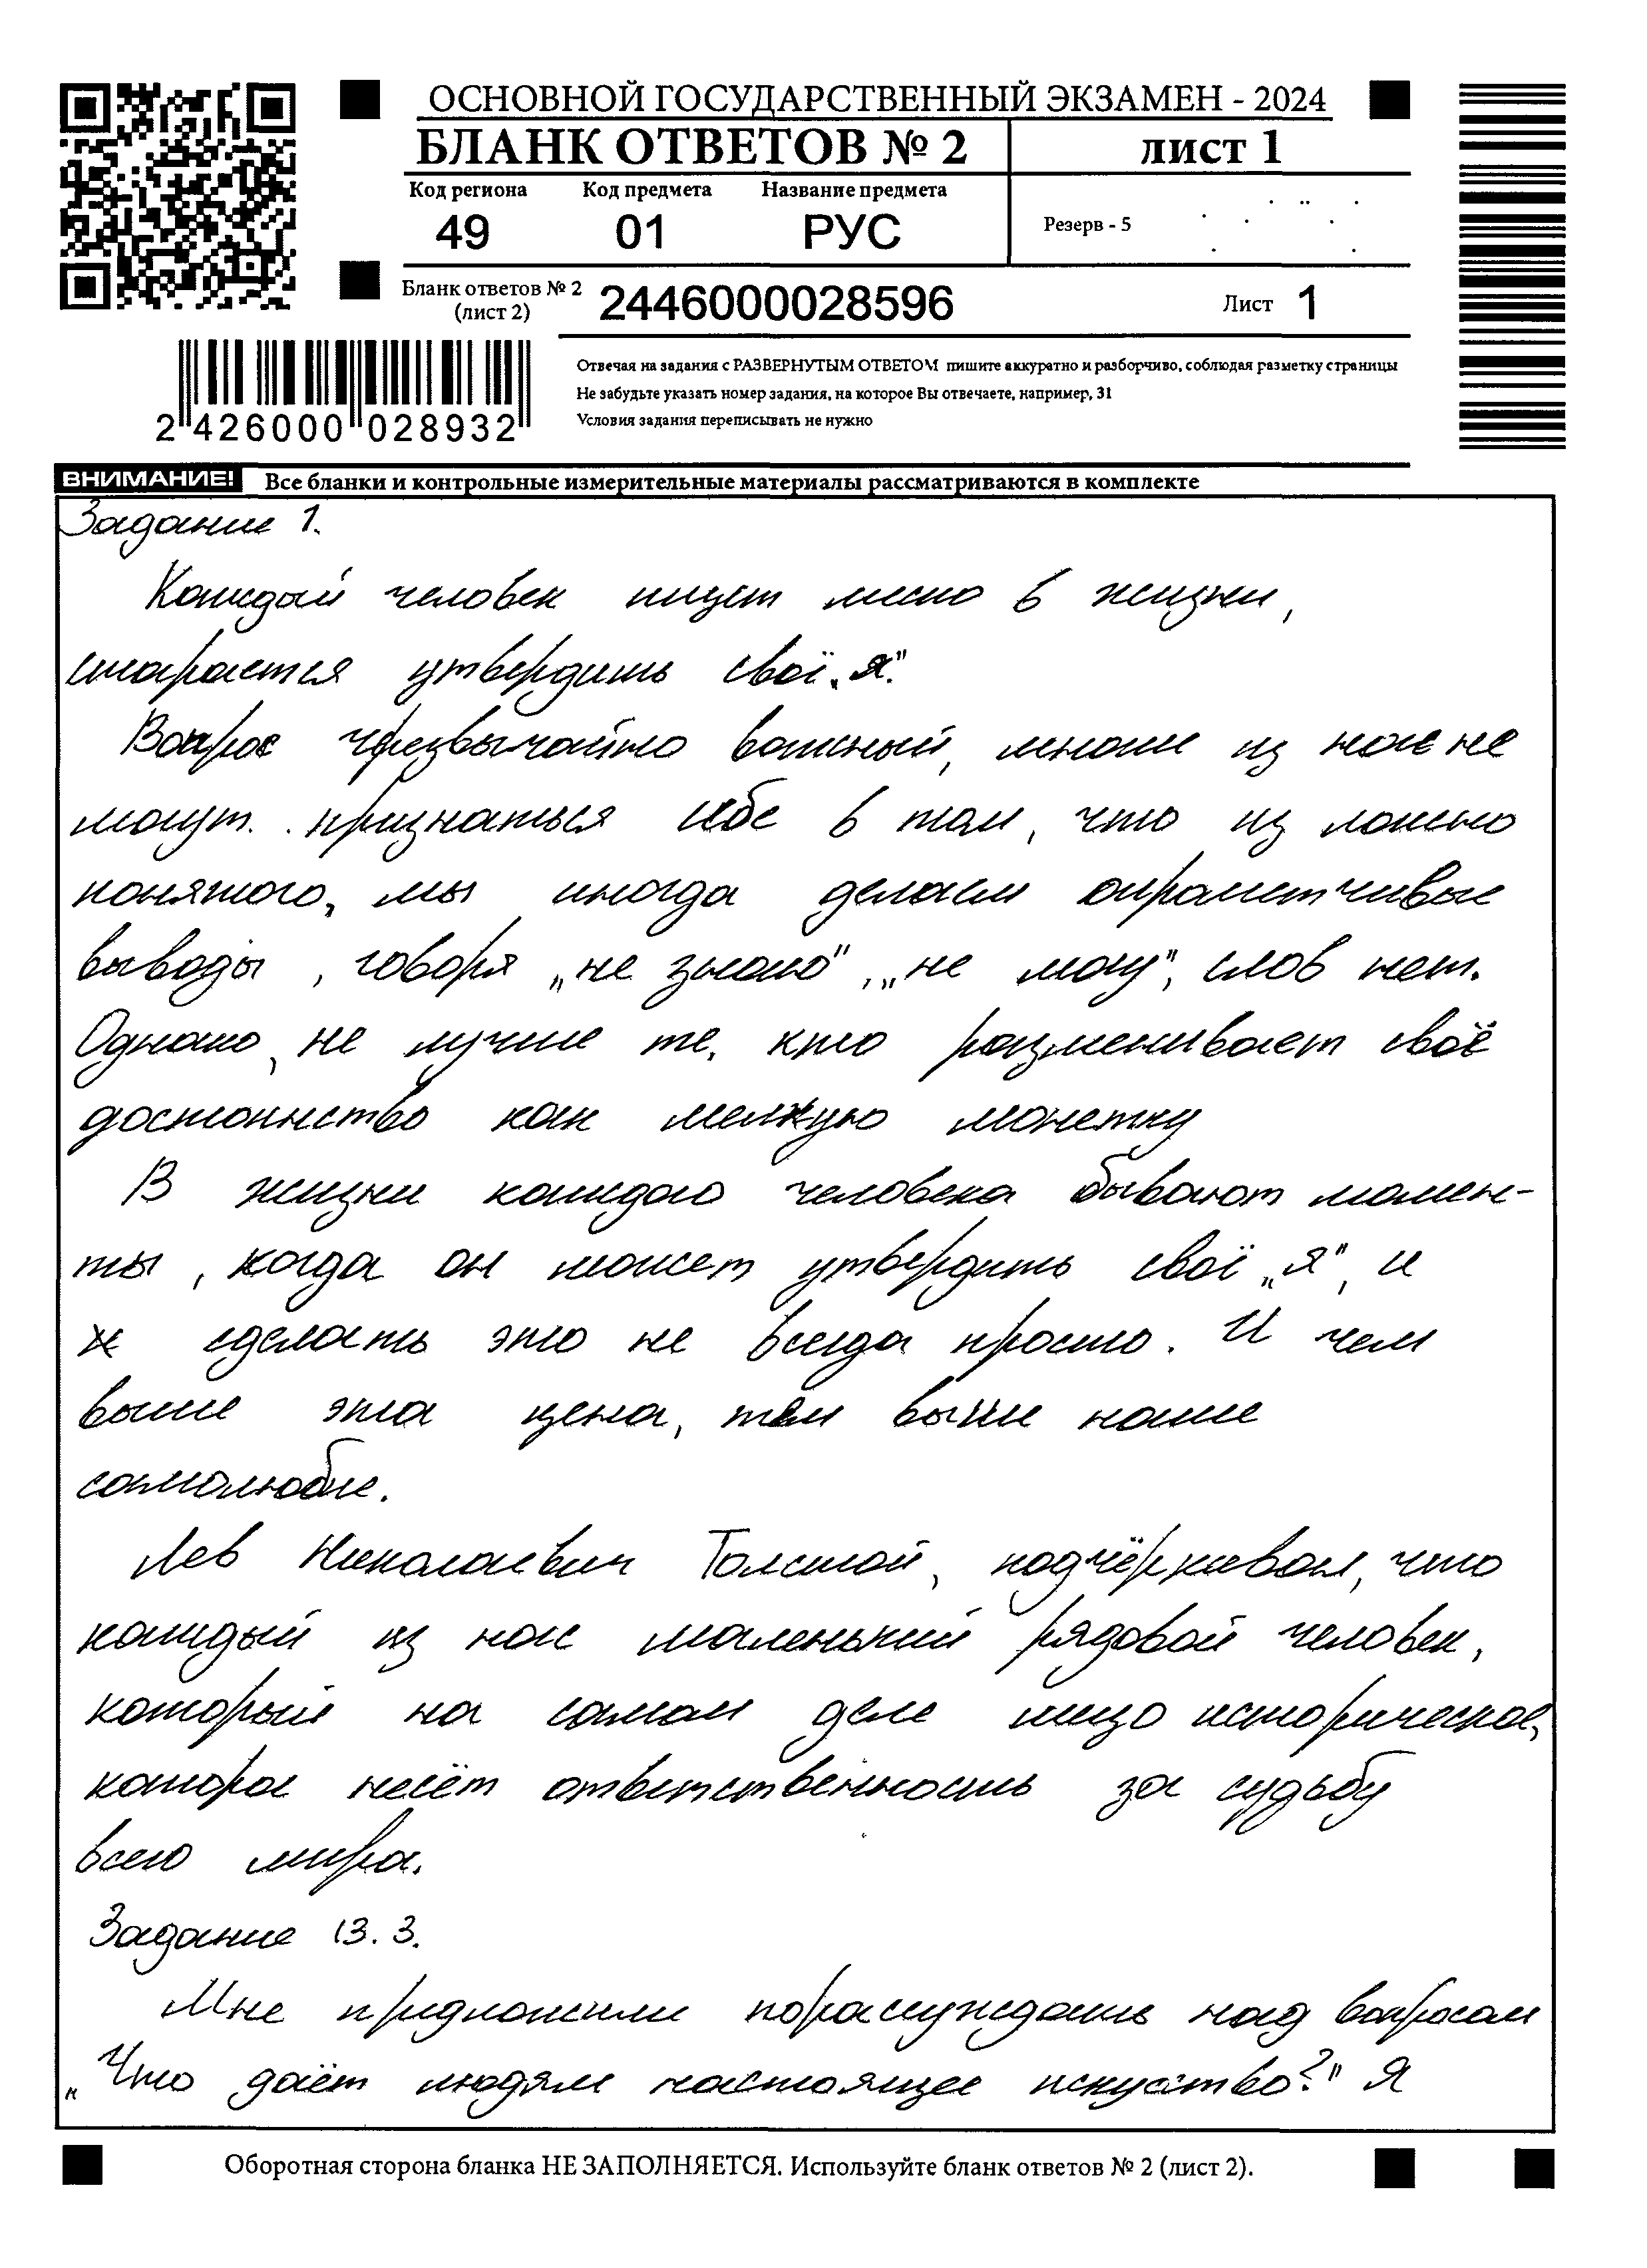 ОСНОВНОЙ ГОСУДАРСТВЕННЫЙ ЭКЗАМЕН - 2024
БЛАНК ОТВЕТОВ № 2 лист 1
Код региона Код предмета Название предмета
49 01 РУС
Резерв - 5
Бланк ответов № 2 (лист 2) 2446000028596 Лист 1
Отвечая на задания с РАЗВЕРНУТЫМ ОТВЕТОМ пишите аккуратно и разборчиво, соблюдая разметку страницы
Не забудьте указать номер задания, на которое Вы отвечаете, например, 31
Условия задания переписывать не нужно
2 426000 028932
ВНИМАНИЕ! Все бланки и контрольные измерительные материалы рассматриваются в комплекте
Задание 1.
Каждый человек ищет место в жизни,
старается утвердить своё „я".
Вопрос чрезвычайно важный, многие из нас не
могут признаться себе в том, что из ложно
понятого, мы иногда делаем опрометчивые
выводы, говоря „не знаю", „не могу", слов нет.
Однако, не лучше те, кто разменивает своё
достоинство как мелкую монетку
В жизни каждого человека бывают момен-
ты, когда он может утвердить своё „я", и
сделать это не всегда просто. И чем
выше эта цена, тем выше наше
самолюбие.
Лев Николаевич Толстой, подчёркивал, что
каждый из нас маленький рядовой человек,
который на самом деле лицо историческое,
которое несёт ответственность за судьбу
всего мира.
Задание 13.3.
Мне предложили порассуждать над вопросом
„Что даёт людям настоящее искуство?" Я
Оборотная сторона бланка НЕ ЗАПОЛНЯЕТСЯ. Используйте бланк ответов № 2 (лист 2).